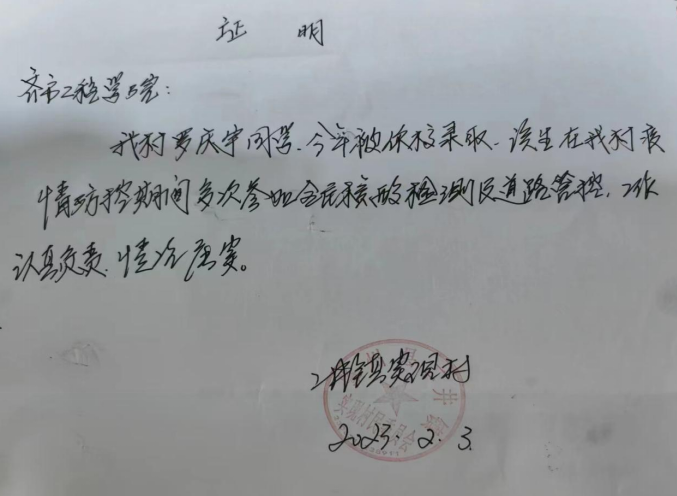 证 明
齐市工程学院:
我村罗庆宇同学、今年被你校录取、该生在我村疫
情防控期间多次参加全民核酸检测及道路管控,工作
认真负责、情况属实。
镇实现村
实现村民委员会
2023.2.3